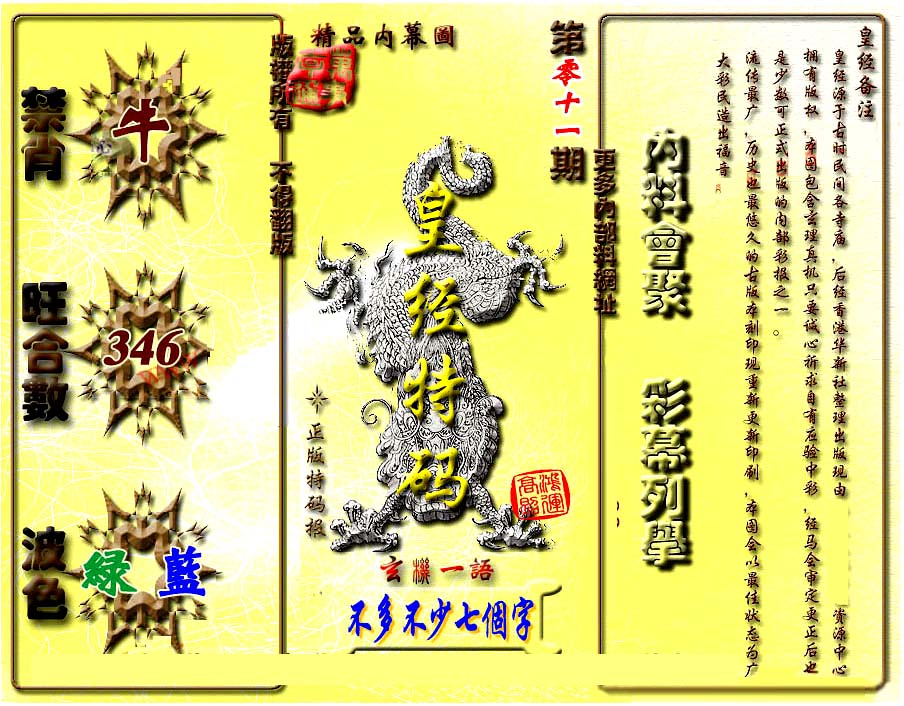 皇经备注
皇经源于古时民间各寺庙，后经香港华新社整理出版现由 资源中心
拥有版权，本图包含玄理真机只要诚心祈求自有应验中彩，经马会审定更正后也
是少数可正式出版的内部彩报之一。
流传最广，历史也最悠久的古版本刻印现重新更新印刷，本图会以最佳状态为广
大彩民造出福音
内料會聚
彩幕列舉
更多内部料網址
第零十一期
精品内幕圖
皇经特码
正版特码报
鴻運
高照
玄機一語
不多不少七個字
版權所有 不得翻版
禁肖
牛
旺合數
346
波色
綠 藍